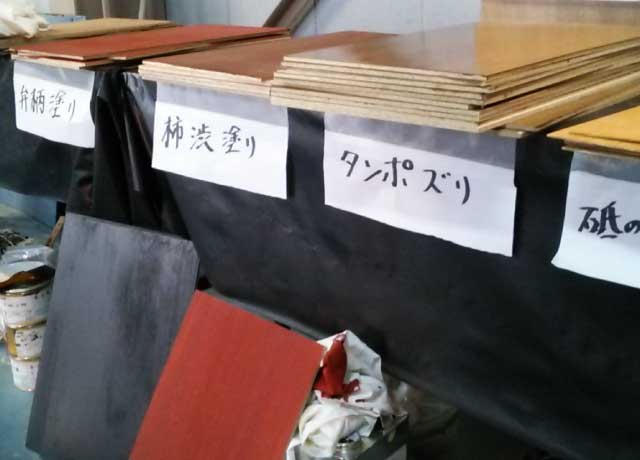 弁柄塗り
柿渋塗り
タンポズリ
砥の